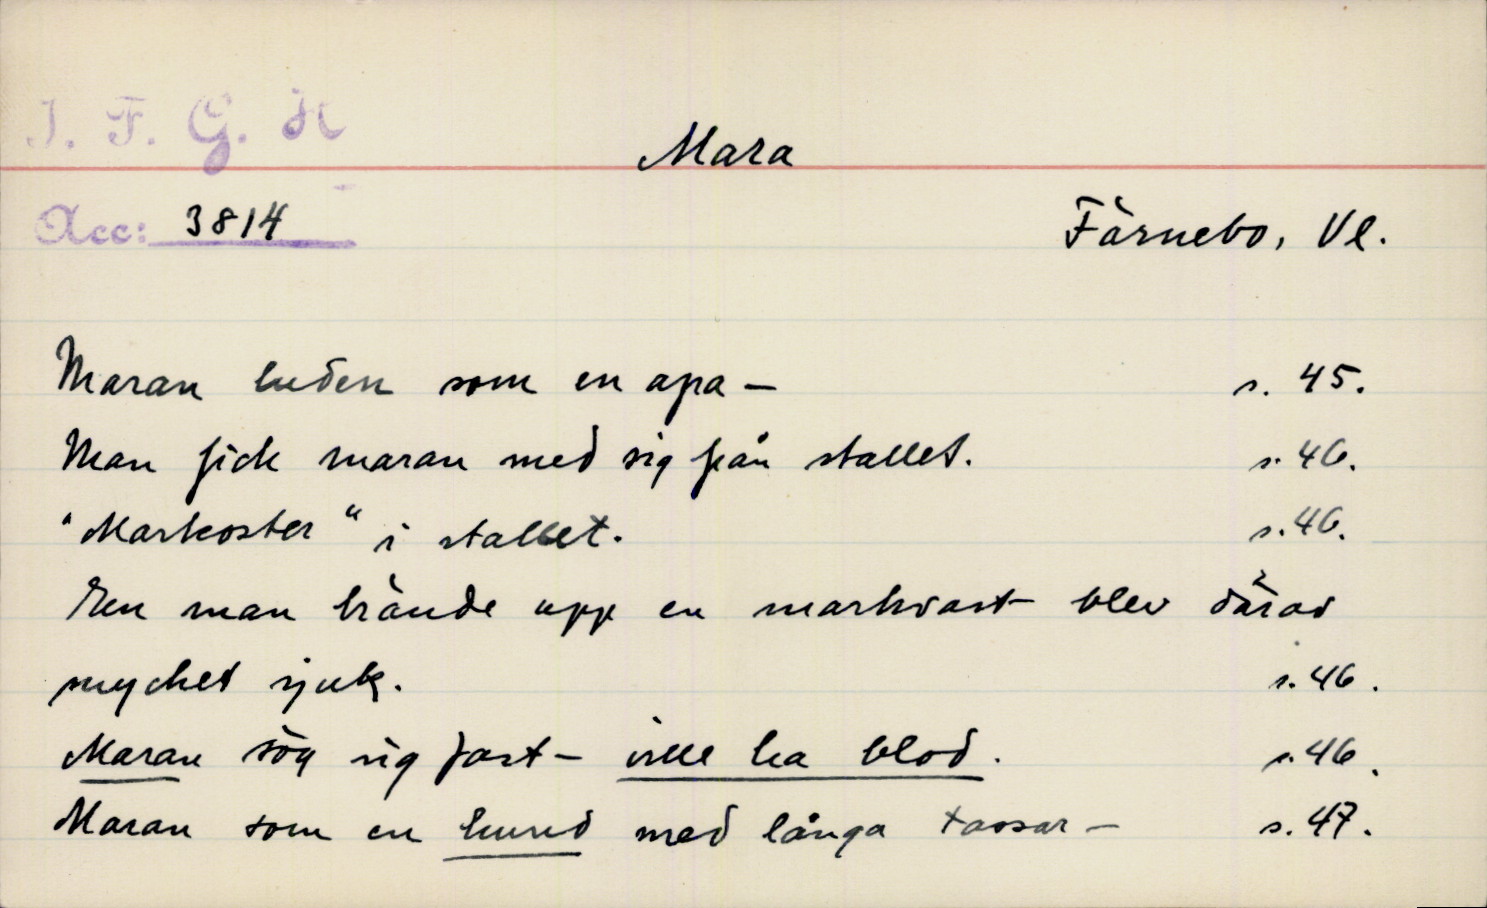 I. F. G. H
Mara
Acc: 3814
Färnebo, Vl.
Maran luden som en apa — s. 45.
Man fick maran med sig från stallet. s. 46.
"Markoster" i stallet. s. 46.
En man brände upp en markvast blev därav
mycket sjuk. s. 46.
Maran sög sig fast — ville ha blod. s. 46.
Maran som en hund med långa tassar — s. 47.